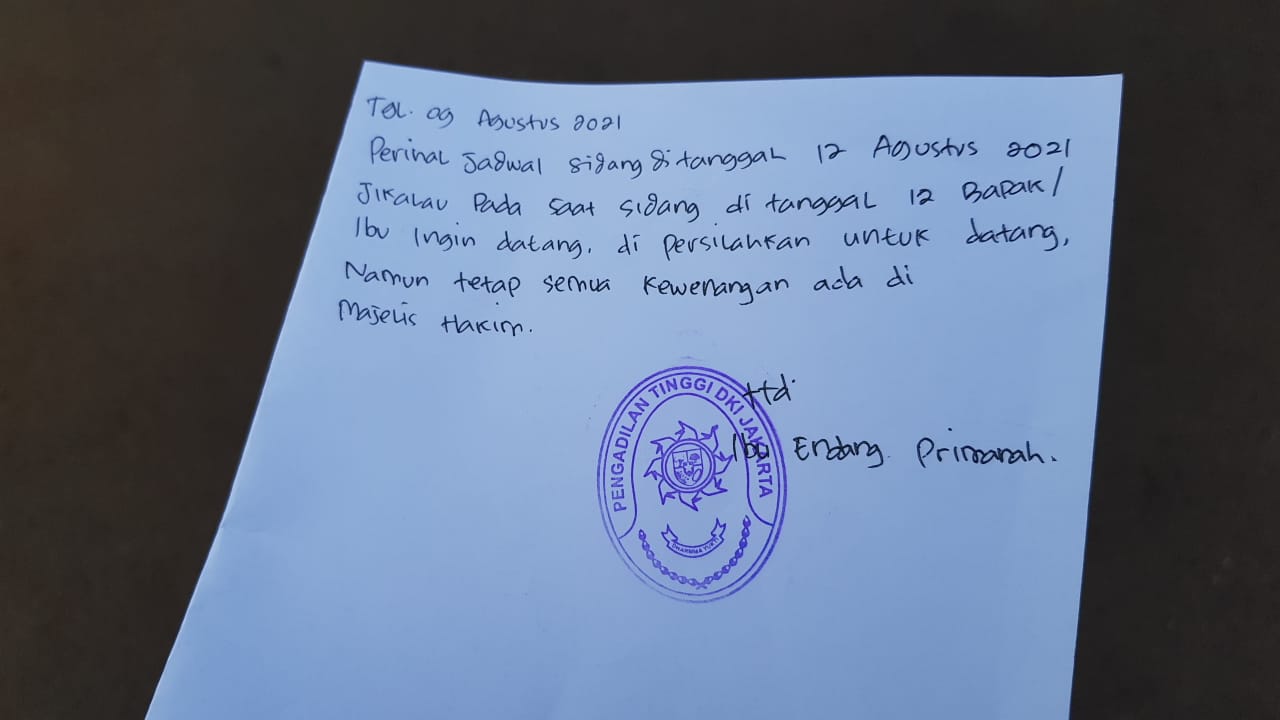 Tgl. 09 Agustus 2021
Perihal Jadwal sidang di tanggal 12 Agustus 2021
Jikalau Pada saat sidang di tanggal 12 Bapak/
Ibu Ingin datang, di persilahkan untuk datang,
Namun tetap semua kewenangan ada di
Majelis Hakim.
ttd
Ibu Endang
PENGADILAN TINGGI DKI JAKARTA
DHARMMA YUKTI